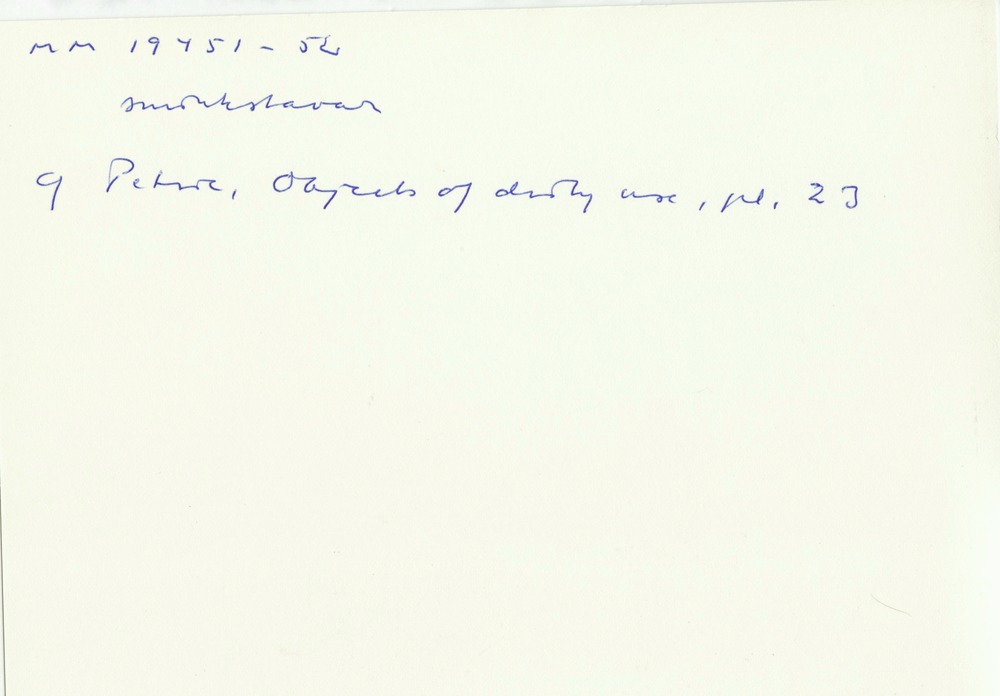 MM 19451-52
sminkstavar
cf Petrie, Objects of daily use, pl. 23